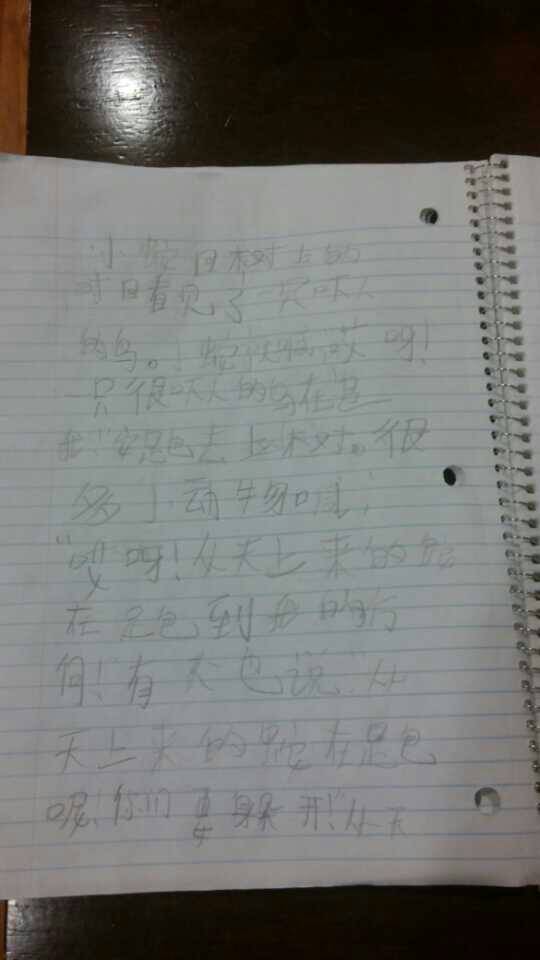 小蛇目树上的
时日看见了一只吓人
的鸟。蛇 哎呀!
一只很吓人的鸟在追
我!"蛇跑去上树。很
多小动物喊,
"哎呀!从天上来的蛇
在跑到我的方
向!"有 也说"从
天上来的蛇在跑
呢!你们要躲开!"从天